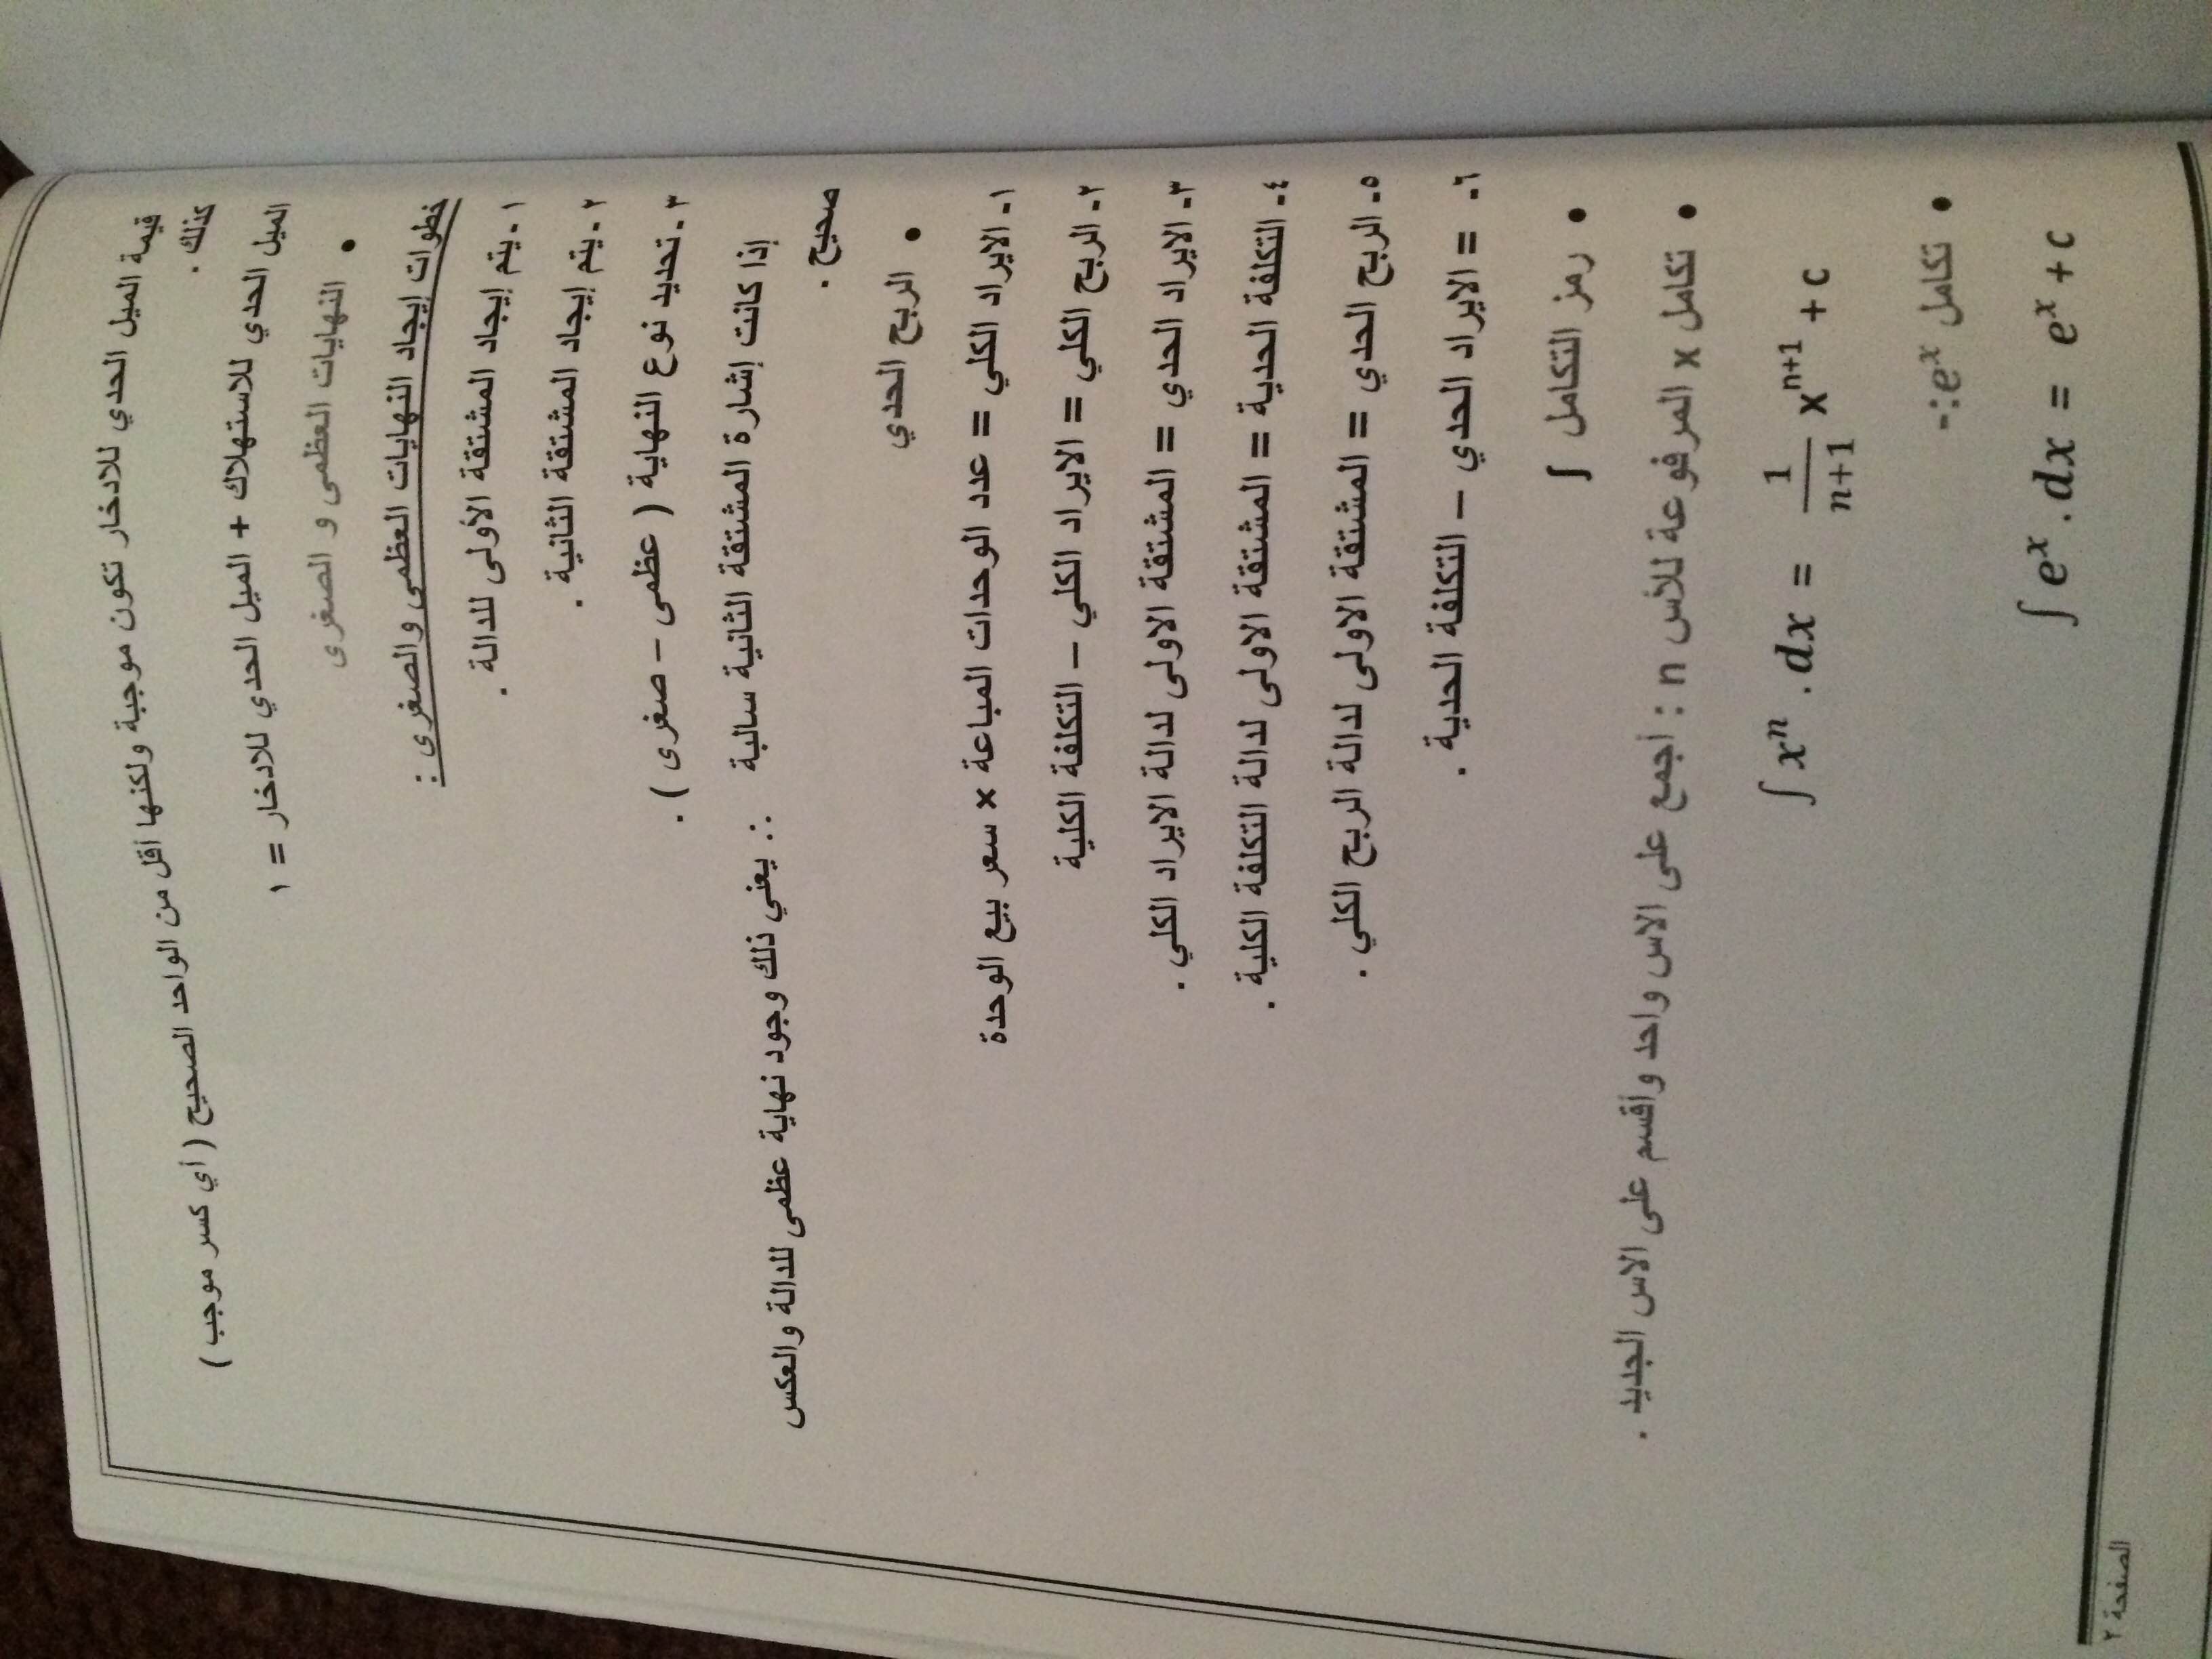 قيمة الميل الحدي للادخار تكون موجبة ولكنها أقل من الواحد الصحيح ( أي كسر موجب )
كذلك .
الميل الحدي للاستهلاك + الميل الحدي للادخار = ١
• النهايات العظمى و الصغرى
خطوات إيجاد النهايات العظمى والصغرى :
١ - يتم إيجاد المشتقة الأولى للدالة .
٢ - يتم إيجاد المشتقة الثانية .
٣ - تحديد نوع النهاية ( عظمى – صغرى ) .
إذا كانت إشارة المشتقة الثانية سالبة ∴ يعني ذلك وجود نهاية عظمى للدالة والعكس
صحيح .
• الربح الحدي
١- الايراد الكلي = عدد الوحدات المباعة × سعر بيع الوحدة
٢- الربح الكلي = الايراد الكلي – التكلفة الكلية
٣- الايراد الحدي = المشتقة الاولى لدالة الايراد الكلي .
٤- التكلفة الحدية = المشتقة الاولى لدالة التكلفة الكلية .
٥- الربح الحدي = المشتقة الاولى لدالة الربح الكلي .
٦- = الايراد الحدي – التكلفة الحدية .
• رمز التكامل ∫
• تكامل x المرفوعة للأس n : أجمع على الاس واحد وأقسم على الاس الجديد .
∫ xⁿ . dx = 1/(n+1) xⁿ⁺¹ + c
• تكامل eˣ:-
∫ eˣ . dx = eˣ + c
الصفحة ٢